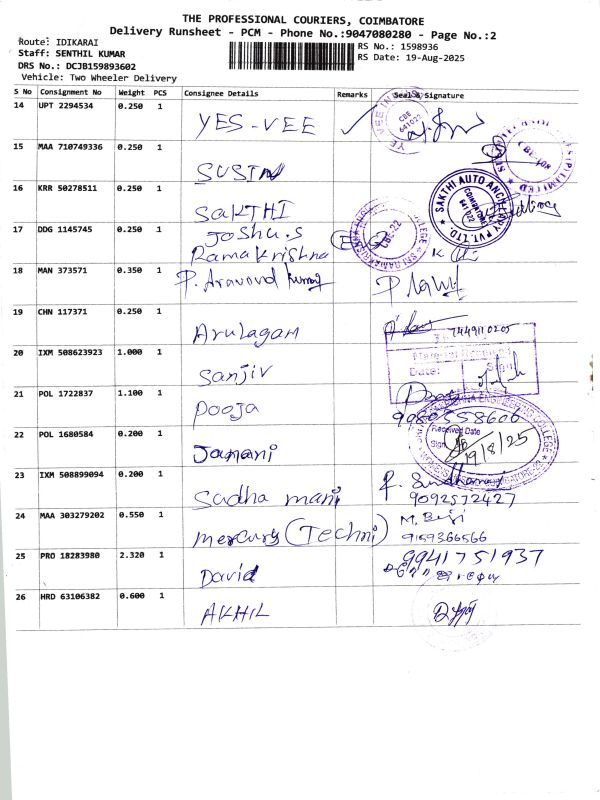 THE PROFESSIONAL COURIERS, COIMBATORE
Delivery Runsheet - PCM - Phone No.:9047080280 - Page No.:2
Route: IDIKARAI
Staff: SENTHIL KUMAR
DRS No.: DCJB159893602
Vehicle: Two Wheeler Delivery
RS No.: 1598936
RS Date: 19-Aug-2025
S No Consignment No Weight PCS Consignee Details Remarks Seal & Signature
14 UPT 2294534 0.250 1 YES-VEE
CBE
641022
15 MAA 710749336 0.250 1 SUSIN
16 KRR 50278511 0.250 1 SAKTHI
SAKTHI AUTO ANCILLARY PVT. LTD.
COIMBATORE
17 DDG 1145745 0.250 1 Joshu.s
Ramakrishna
CBE-22
18 MAN 373571 0.350 1 P. Aravond kumar
19 CHN 117371 0.250 1 Arulagam
7449110205
20 IXM 508623923 1.000 1 Sanjiv
Material Received
Date: Sign
21 POL 1722837 1.100 1 Pooja
22 POL 1680584 0.200 1 Janani
Received Date
Sign
19/8/25
23 IXM 508899094 0.200 1 Sudha mani
9092572427
24 MAA 303279202 0.550 1 Mercury (Techni)
9159366566
25 PRO 18283980 2.320 1 David
9941751937
26 HRD 63106382 0.600 1 AKHIL